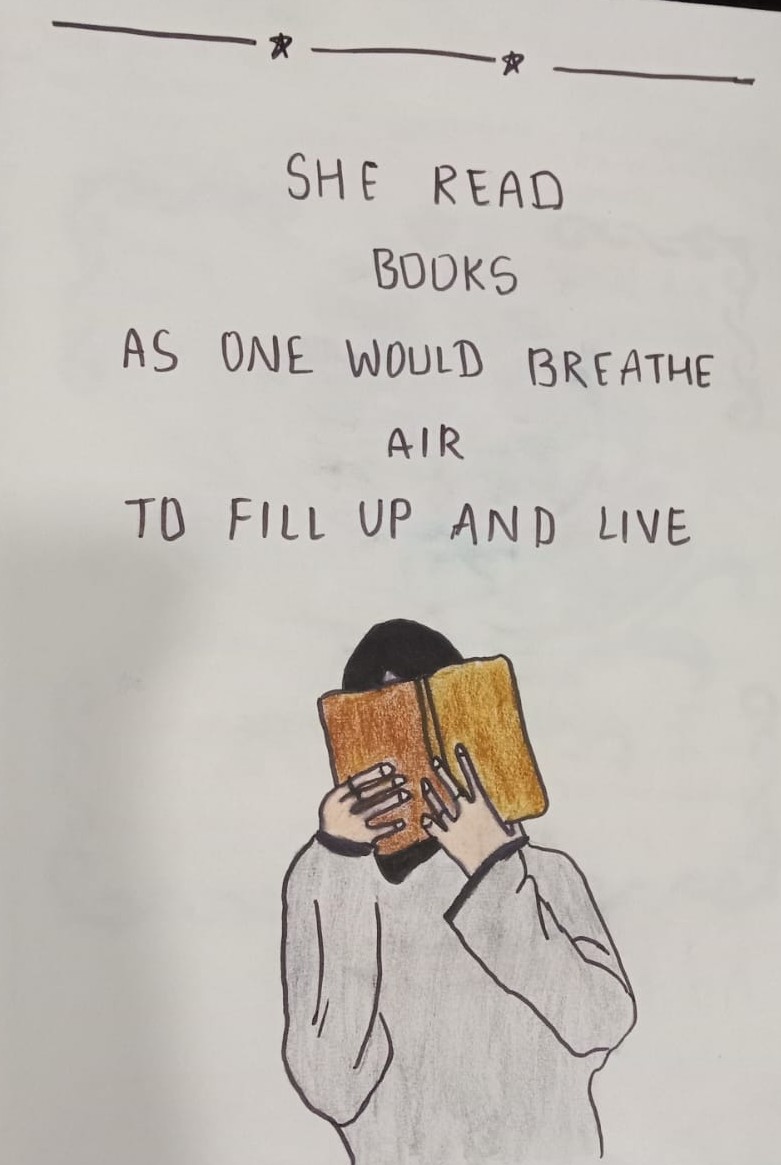 SHE READ
BOOKS
AS ONE WOULD BREATHE
AIR
TO FILL UP AND LIVE